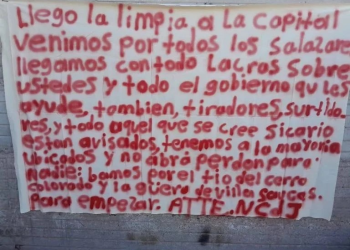 Llego la limpia a la capital
venimos por todos los salazare
llegamos con todo Lacros sobre
ustedes y todo el gobierno qu les
ayude, tambien, tiradores, surtido
res, y todo aquel que se cree sicario
estan avisados, tenemos a la mayoria
ubicados y no abrá perdon para
nadie: bamos por el tio del carro
colorado y la güera de villa sauces.
Para empezar. ATTE. NCDJ